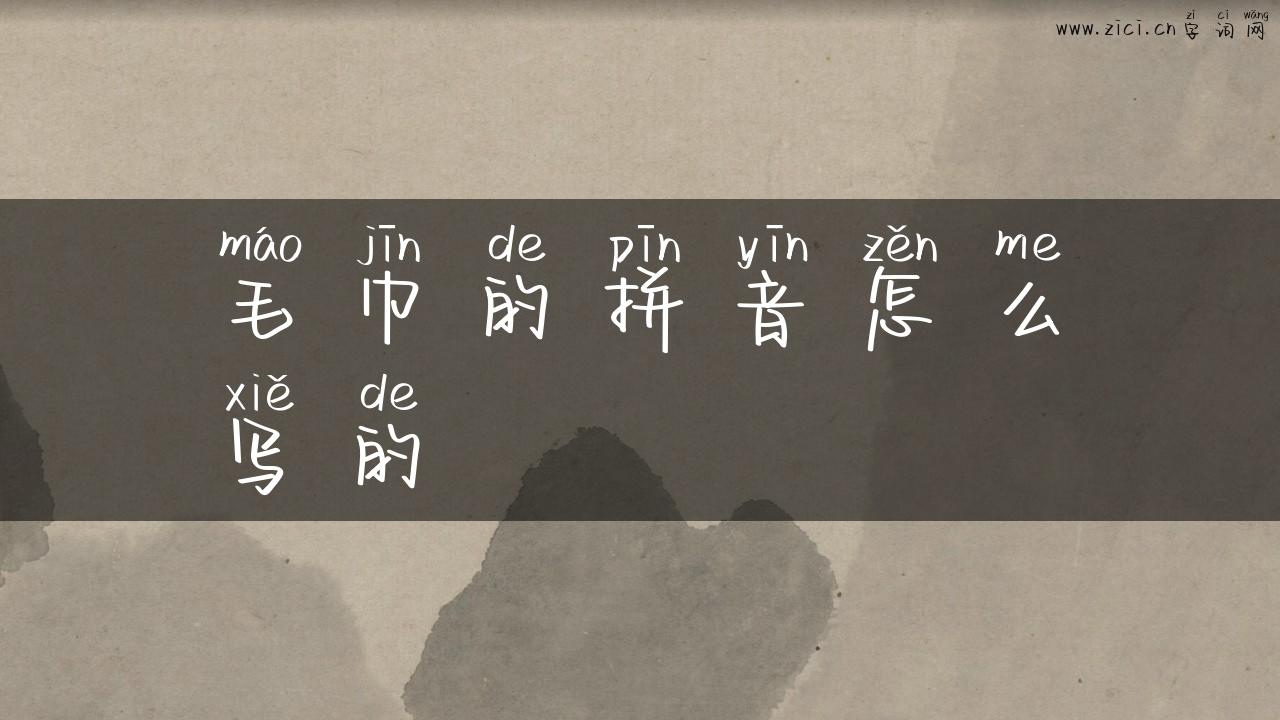 zì cí wǎng
www.zici.cn 字 词 网
máo jīn de pīn yīn zěn me
毛 巾 的 拼 音 怎 么
xiě de
写 的